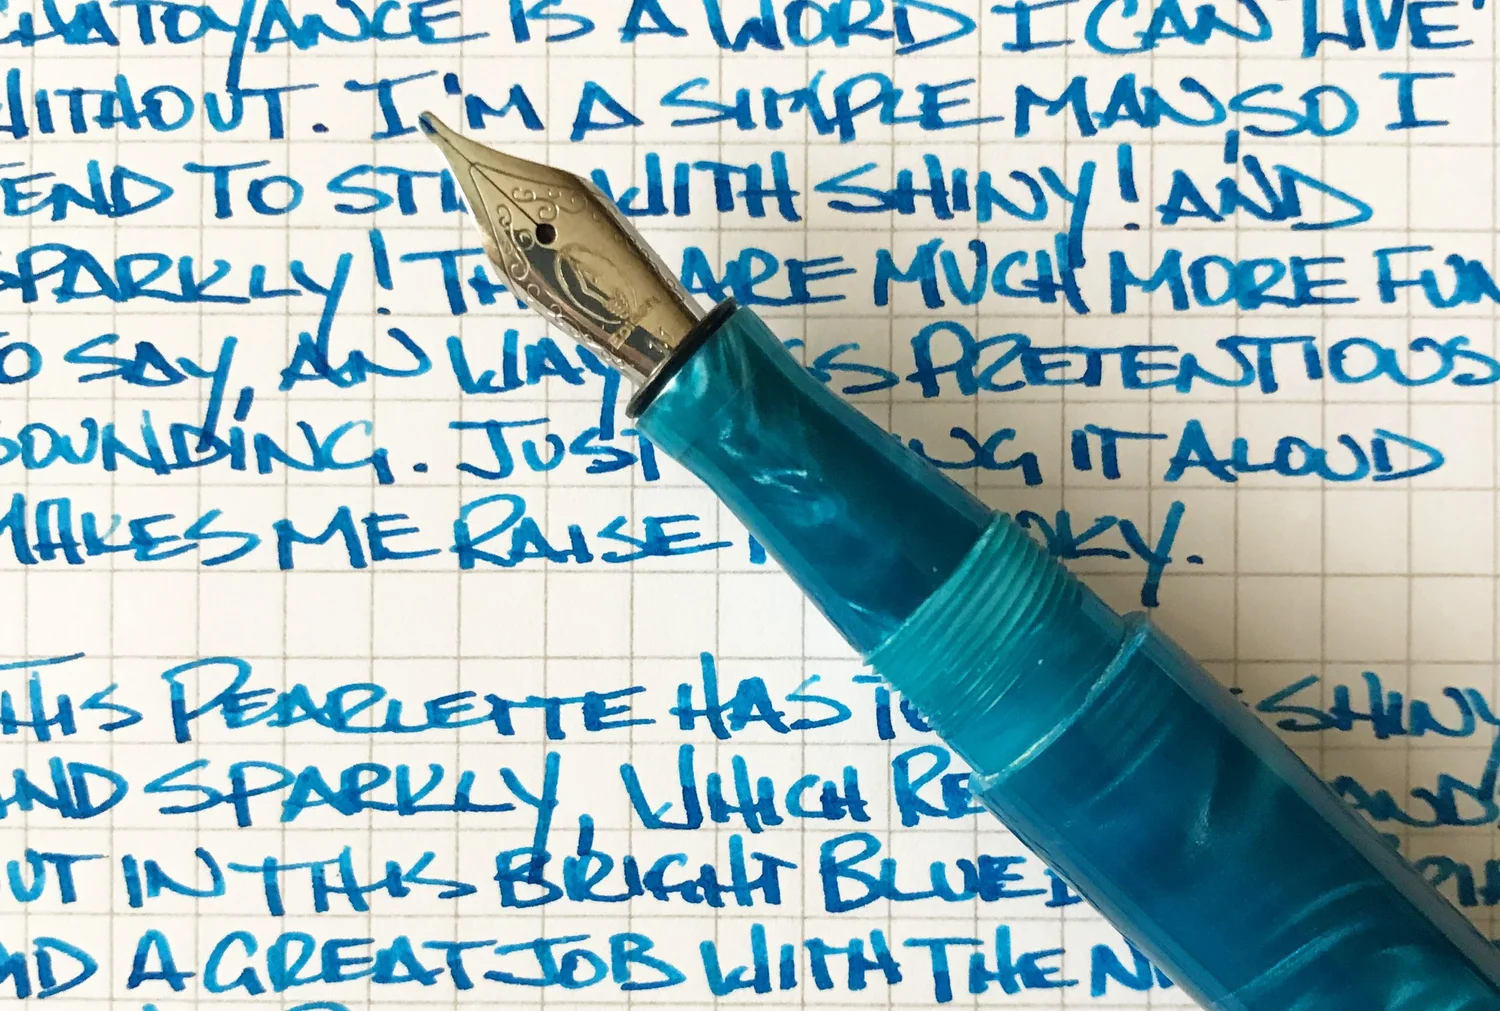 CHATOYANCE IS A WORD I CAN LIVE
WITHOUT. I'M A SIMPLE MAN, SO I
TEND TO WITH SHINY! AND
SPARKLY! ARE MUCH MORE FUN
TO SAY, AN WAY PRETENTIOUS
SOUNDING. JUST IT ALOUD
MAKES ME RAISE
THIS PEARLETTE HAS SHINY
AND SPARKLY, WHICH
OUT IN THIS BRIGHT BLUE
A GREAT JOB WITH THE